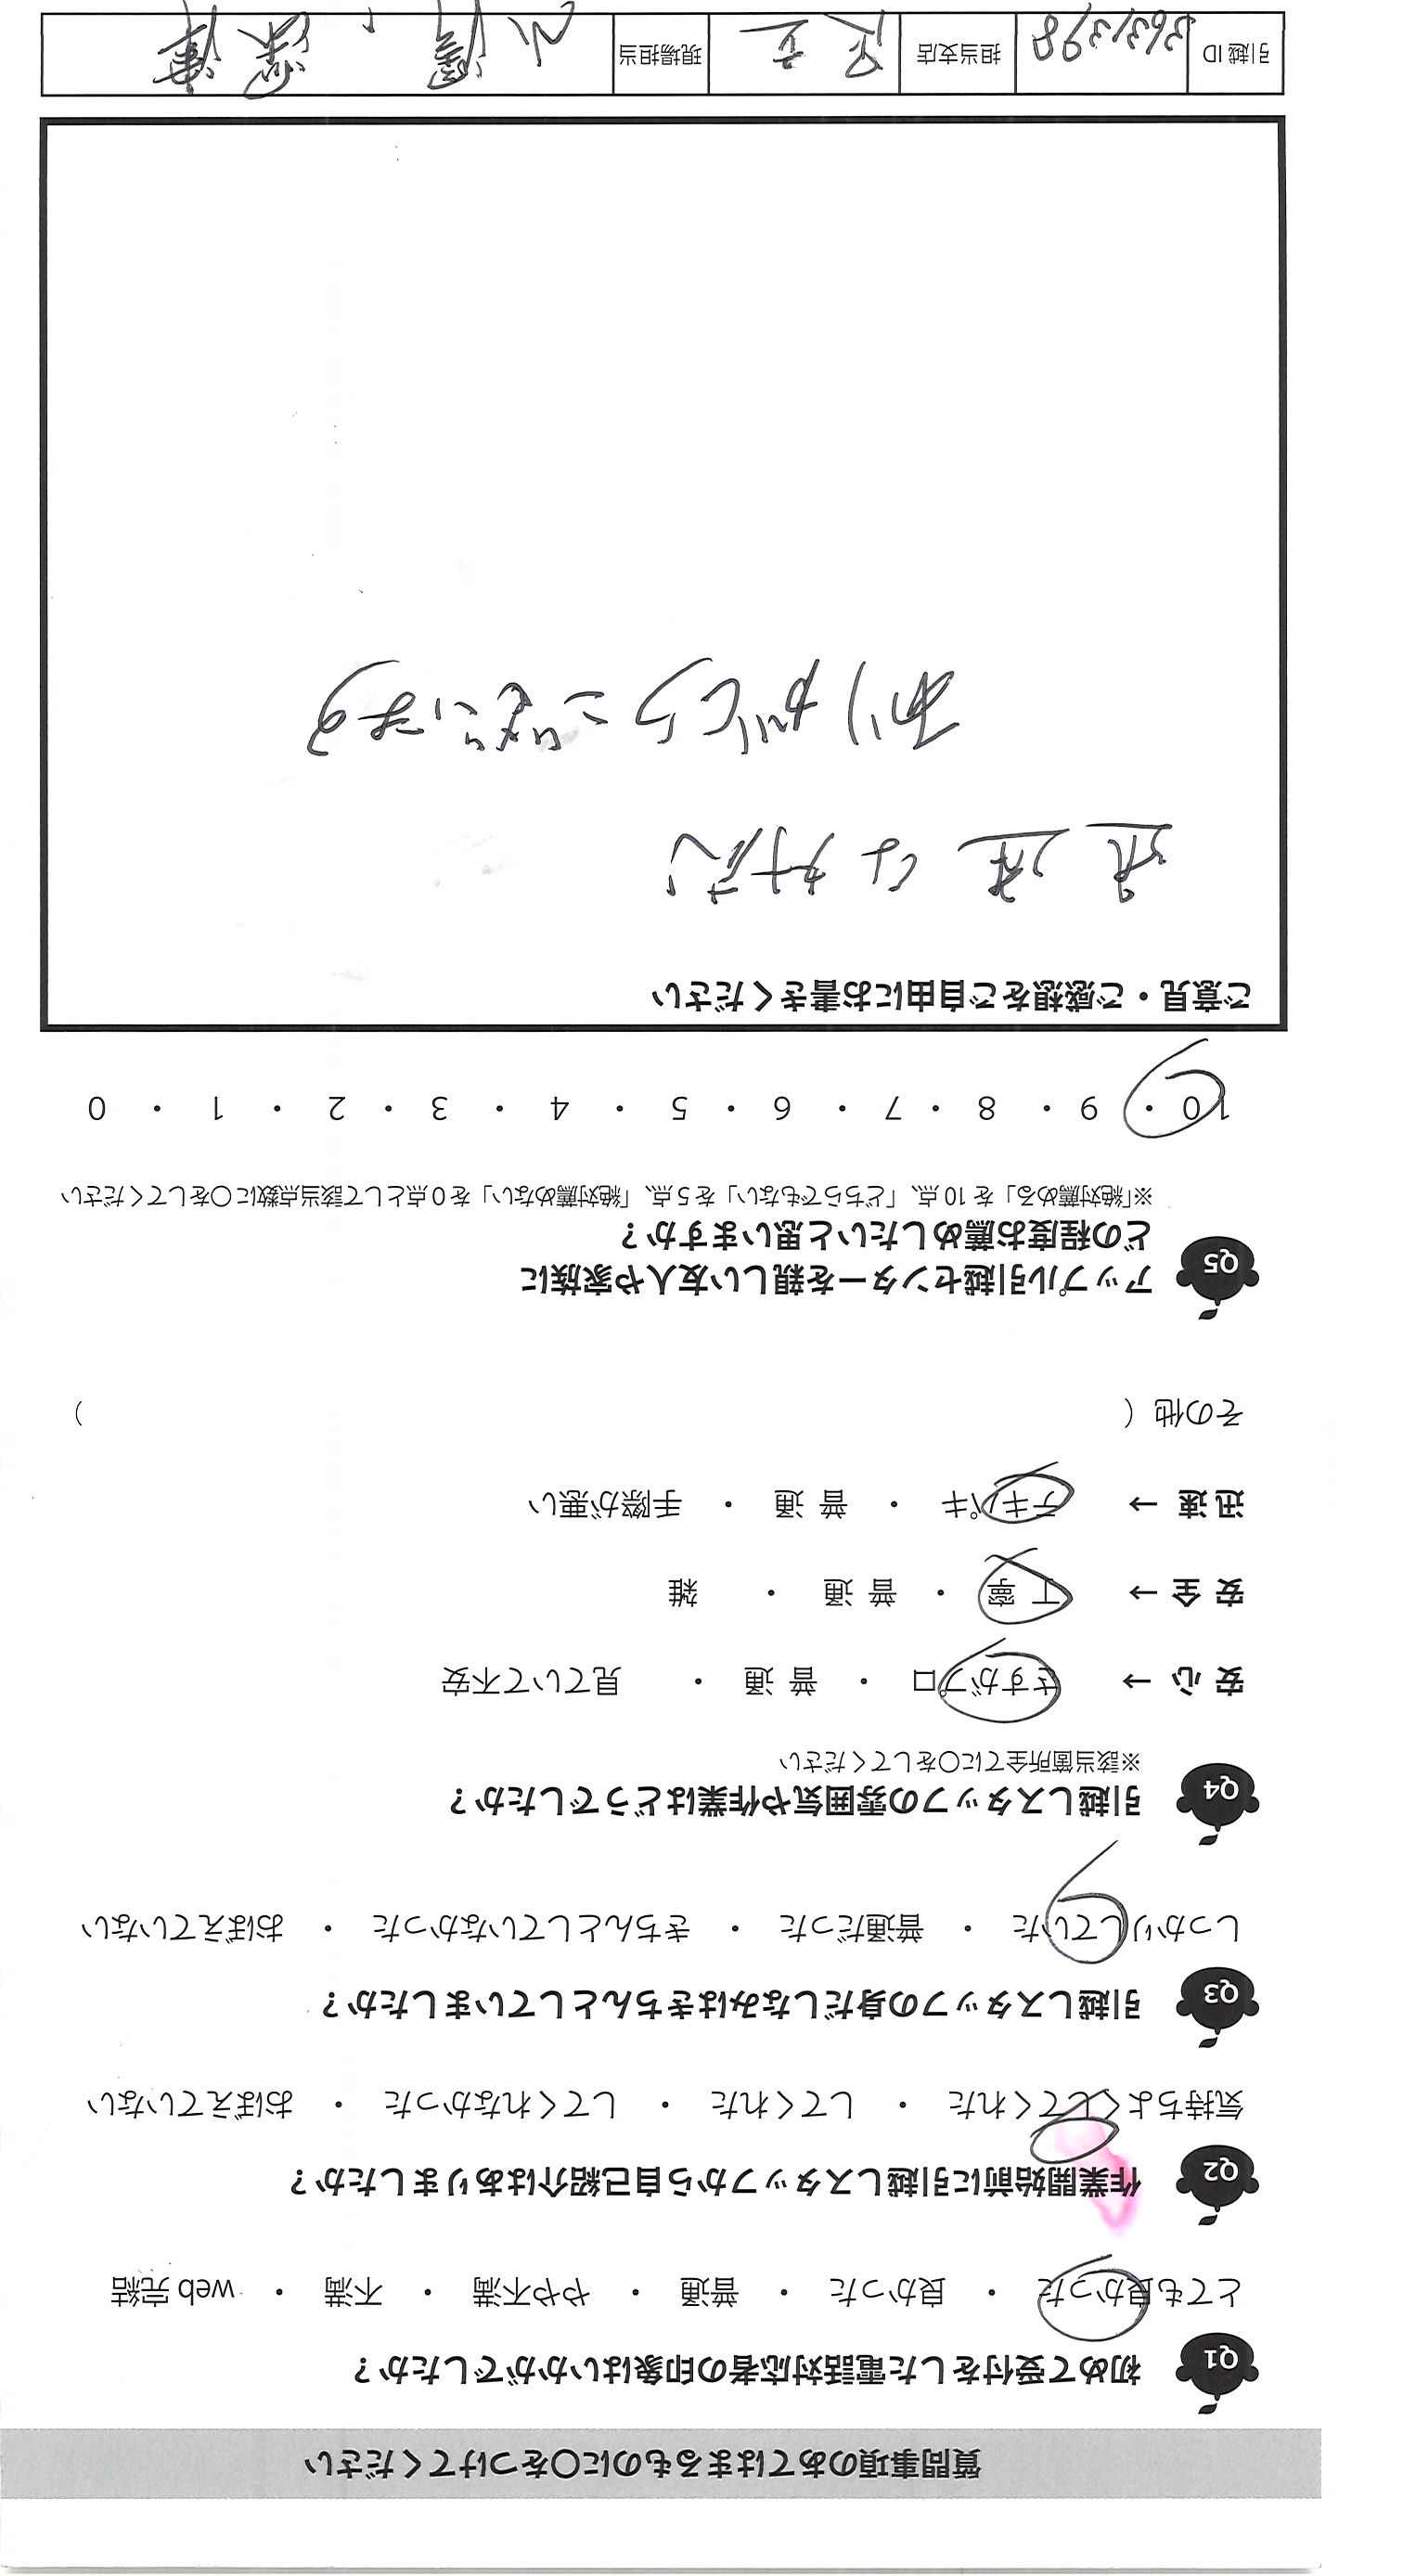 質問事項のあてはまるものに○をつけてください
Q1 初めて受付をした電話対応者の印象はいかがでしたか？
とても良かった ・ 良かった ・ 普通 ・ やや不満 ・ 不満 ・ web 完結
Q2 作業開始前に引越しスタッフから自己紹介はありましたか？
気持ちよくしてくれた ・ してくれた ・ してくれなかった ・ おぼえていない
Q3 引越しスタッフの身だしなみはきちんとしていましたか？
しっかりしていた ・ 普通だった ・ きちんとしていなかった ・ おぼえていない
Q4 引越しスタッフの雰囲気や作業はどうでしたか？
※該当箇所全てに○をしてください
安 心 → さすがプロ ・ 普 通 ・ 見ていて不安
安 全 → 丁 寧 ・ 普 通 ・ 雑
迅 速 → テキパキ ・ 普 通 ・ 手際が悪い
その他（ ）
Q5 アップル引越センターを親しい友人や家族に
どの程度お薦めしたいと思いますか？
※「絶対薦める」を 10 点、「どちらでもない」を 5 点、「絶対薦めない」を 0 点として該当点数に○をしてください
10 ・ 9 ・ 8 ・ 7 ・ 6 ・ 5 ・ 4 ・ 3 ・ 2 ・ 1 ・ 0
ご意見・ご感想をご自由にお書きください
迅速な対応
ありがとうございます
引越 ID 担当支店 足立 現場担当